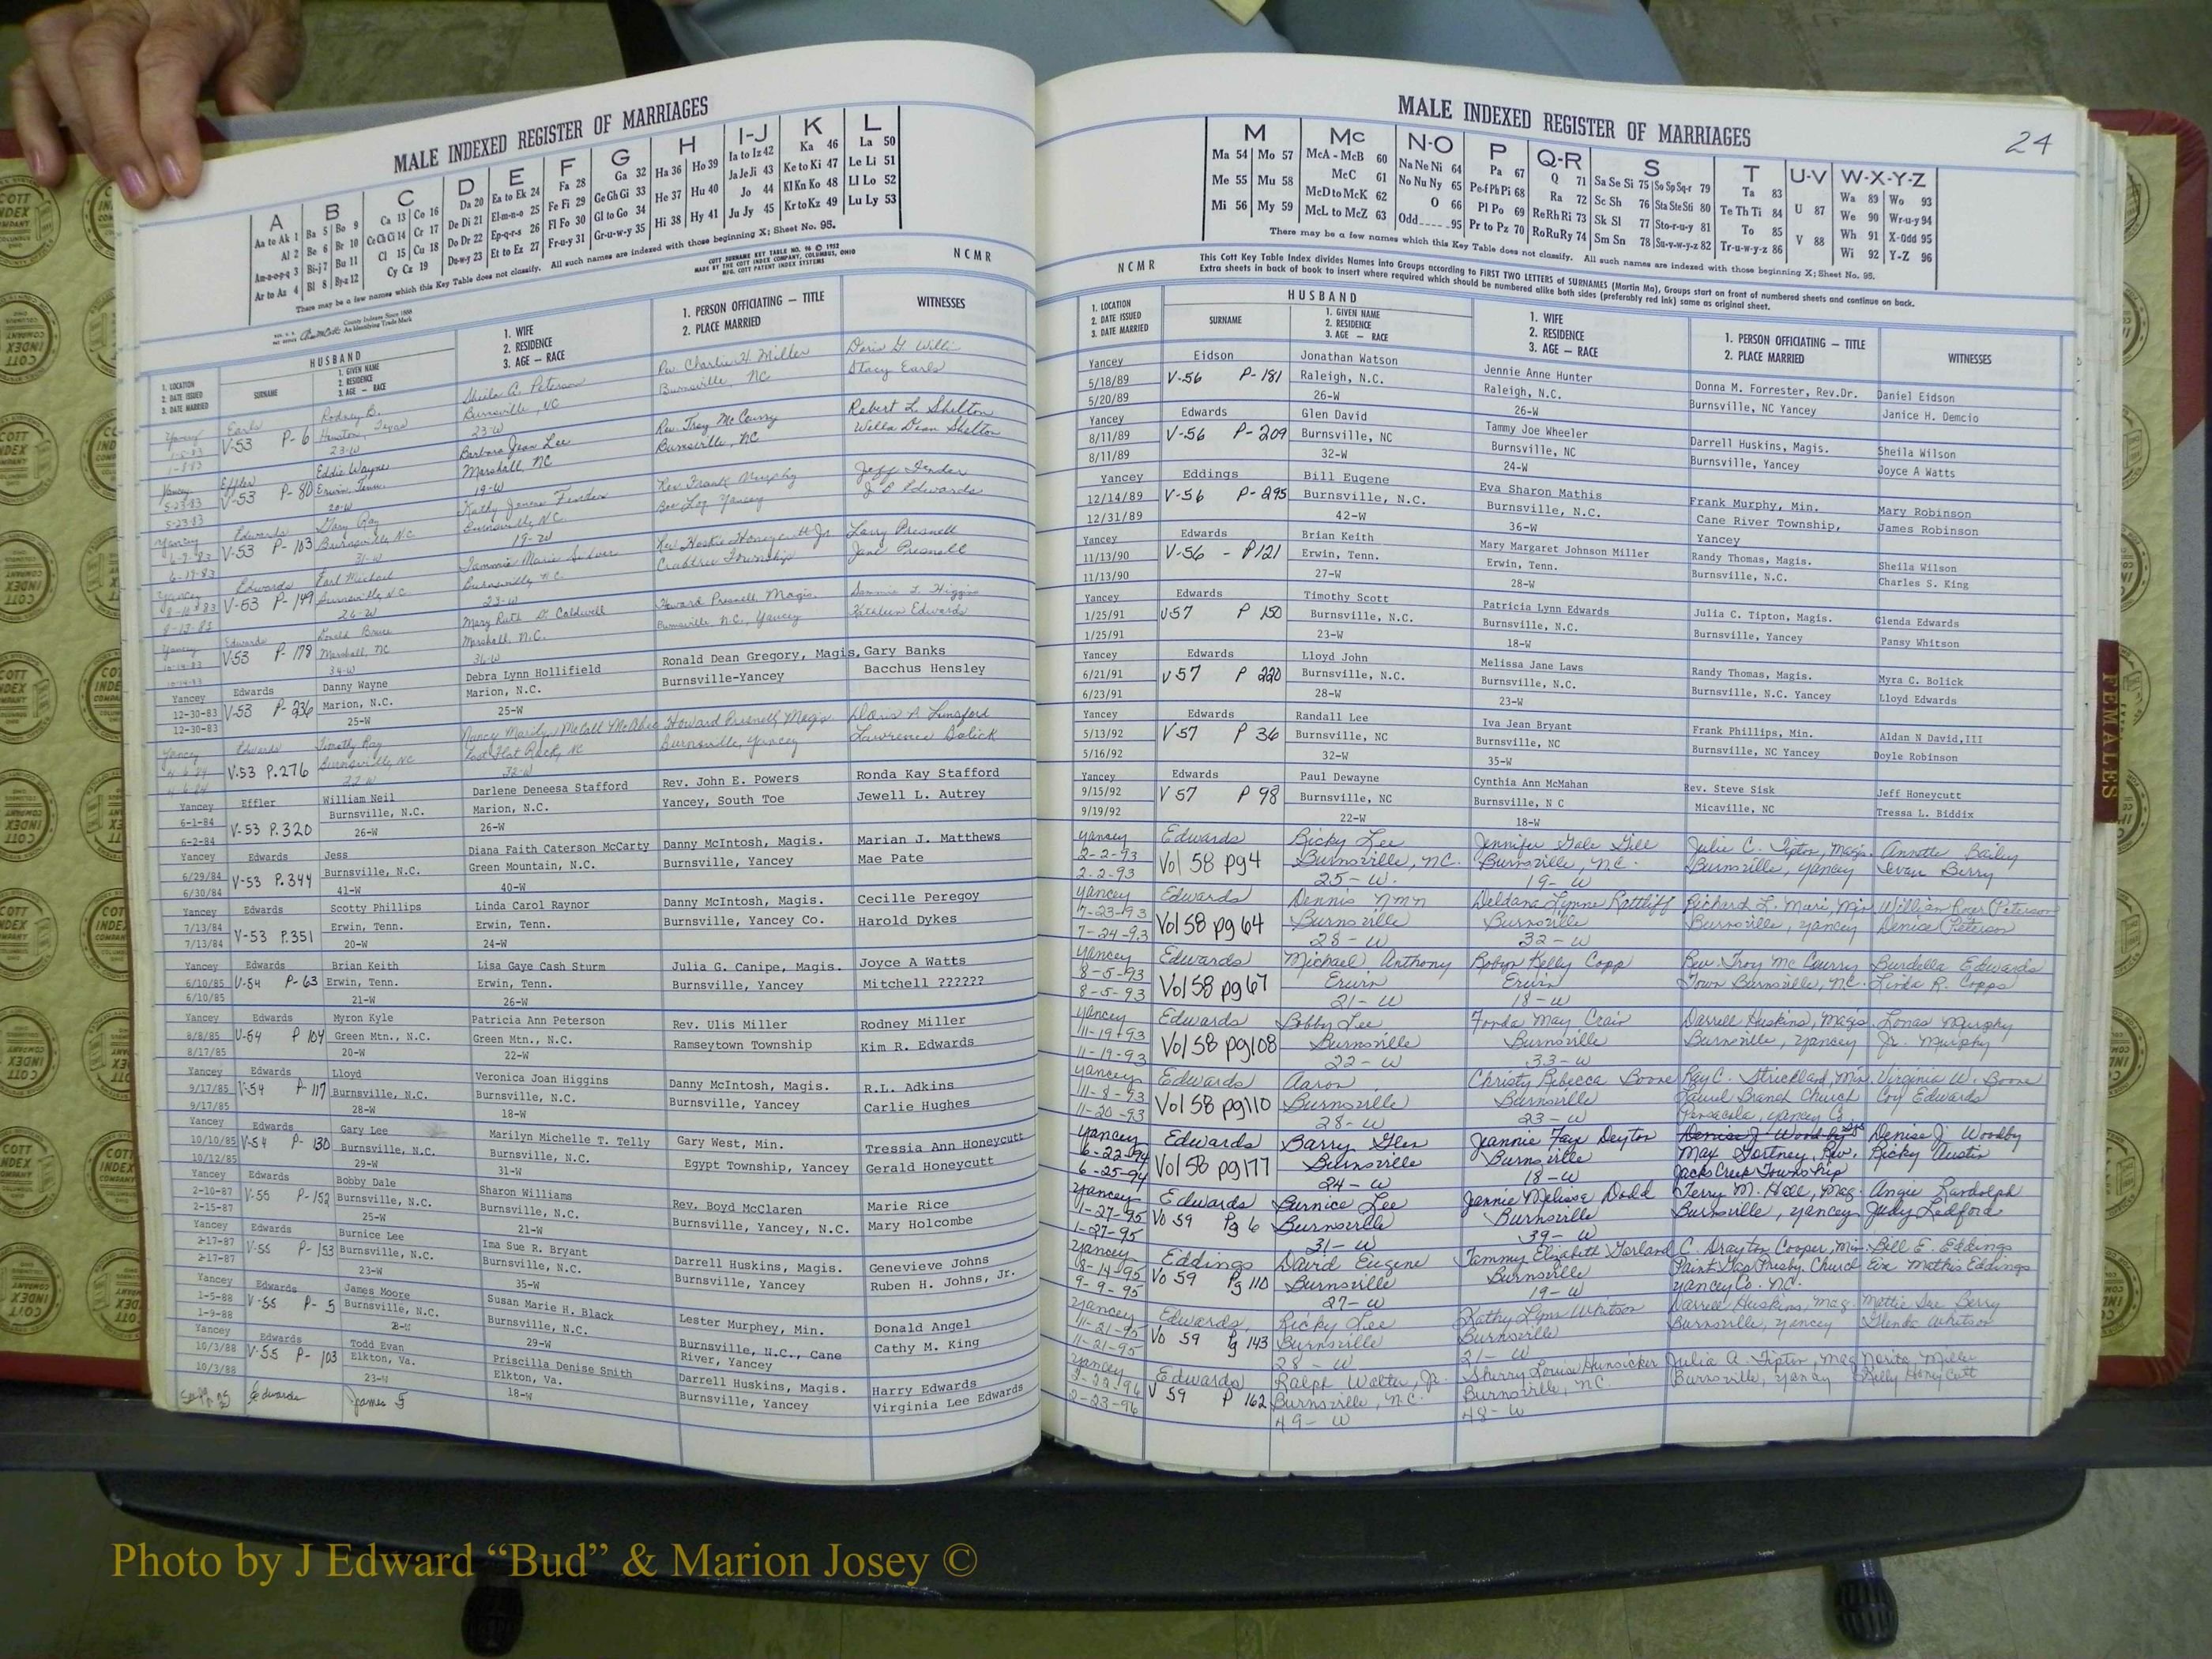 MALE INDEXED REGISTER OF MARRIAGES
A B C D E F G H I-J K L
Aa to Ak 1 Ba 5 Bo 9 Ca 13 Co 16 Da 20 Ea to Ek 24 Fa 28 Ga 32 Ha 36 Ho 39 Ia to Iz 42 Ka 46 La 50
Al 2 Be 6 Br 10 Ce Ch Ci 14 Cr 17 De Di 21 El-m-n-o 25 Fe Fi 29 Ge Gh Gi 33 He 37 Hu 40 Ja Je Ji 43 Ke to Ki 47 Le Li 51
Am-n-o-p-q 3 Bi-j 7 Bu 11 Cl 15 Cu 18 Do Dr 22 Ep-q-r-s 26 Fl Fo 30 Gl to Go 34 Hi 38 Hy 41 Jo 44 Kl Kn Ko 48 Ll Lo 52
Ar to Az 4 Bl 8 By-z 12 Cy Cz 19 Du-w-y 23 Et to Ez 27 Fr-u-y 31 Gr-u-w-y 35 Ju Jy 45 Kr to Kz 49 Lu Ly 53
There may be a few names which this Key Table does not classify. All such names are indexed with those beginning X; Sheet No. 95.
COTT SURNAME KEY TABLE NO. 96 © 1952
MADE BY THE COTT INDEX COMPANY, COLUMBUS, OHIO
MFG. COTT PATENT INDEX SYSTEMS
NCMR
County Indexes Since 1888
An Identifying Trade Mark
1. LOCATION
2. DATE ISSUED
3. DATE MARRIED
HUSBAND
SURNAME
1. GIVEN NAME
2. RESIDENCE
3. AGE — RACE
1. WIFE
2. RESIDENCE
3. AGE — RACE
1. PERSON OFFICIATING — TITLE
2. PLACE MARRIED
WITNESSES
Yancey Earls Rodney B. Sheila A. Peterson Rev. Charlie H. Miller Doris G. Willi
V-53 P-6 Houston, Texas Burnsville, NC Burnsville, NC Stacy Earls
1-8-83 23-W 23-W
Yancey Effler Eddie Wayne Barbara Jean Lee Rev. Troy McCurry Robert L. Shelton
5-23-83 V-53 P-80 Erwin, Tenn. Marshall, NC Burnsville, NC Wella Dean Shelton
5-23-83 20-W 19-W
Yancey Edwards Gary Ray Kathy Fender Rev. Frank Murphy Jeff Fender
6-9-83 V-53 P-103 Burnsville, N.C. Burnsville, N.C. Bee Log Yancey Edwards
6-19-83 31-W 19-W
Yancey Edwards Earl Michael Tammie Marie Rev. Honeycutt Jr Larry Presnell
8-11-83 V-53 P-149 Burnsville, N.C. Burnsville, N.C. Crabtree Township Jane Presnell
8-13-83 26-W 23-W
Yancey Edwards Bruce Mary Ruth D. Caldwell Howard Presnell, Magis. Higgins
V-53 P-179 Marshall, NC Marshall, N.C. Burnsville, N.C., Yancey Kathleen Edwards
34-W 36-W
Yancey Edwards Danny Wayne Debra Lynn Hollifield Ronald Dean Gregory, Magis. Gary Banks
12-30-83 V-53 P-236 Marion, N.C. Marion, N.C. Burnsville-Yancey Bacchus Hensley
12-30-83 25-W 25-W
Yancey Edwards Timothy Ray Nancy Marilyn McCall McAbee Howard Presnell, Magis. Doris A. Lunsford
V-53 P.276 Burnsville, NC East Flat Rock, NC Burnsville, Yancey Lawrence Bolick
22-W 32-W
Yancey Effler William Neil Darlene Deneesa Stafford Rev. John E. Powers Ronda Kay Stafford
6-1-84 V-53 P.320 Burnsville, N.C. Marion, N.C. Yancey, South Toe Jewell L. Autrey
6-2-84 26-W 26-W
Yancey Edwards Jess Diana Faith Caterson McCarty Danny McIntosh, Magis. Marian J. Matthews
6/29/84 V-53 P.344 Burnsville, N.C. Green Mountain, N.C. Burnsville, Yancey Mae Pate
6/30/84 41-W 40-W
Yancey Edwards Scotty Phillips Linda Carol Raynor Danny McIntosh, Magis. Cecille Peregoy
7/13/84 V-53 P.351 Erwin, Tenn. Erwin, Tenn. Burnsville, Yancey Co. Harold Dykes
7/13/84 20-W 24-W
Yancey Edwards Brian Keith Lisa Gaye Cash Sturm Julia G. Canipe, Magis. Joyce A Watts
6/10/85 V-54 P-63 Erwin, Tenn. Erwin, Tenn. Burnsville, Yancey Mitchell ??????
6/10/85 21-W 26-W
Yancey Edwards Myron Kyle Patricia Ann Peterson Rev. Ulis Miller Rodney Miller
8/8/85 V-54 P 104 Green Mtn., N.C. Green Mtn., N.C. Ramseytown Township Kim R. Edwards
8/17/85 20-W 22-W
Yancey Edwards Lloyd Veronica Joan Higgins Danny McIntosh, Magis. R.L. Adkins
9/17/85 V-54 P-117 Burnsville, N.C. Burnsville, N.C. Burnsville, Yancey Carlie Hughes
9/17/85 28-W 18-W
Yancey Edwards Gary Lee Marilyn Michelle T. Telly Gary West, Min. Tressia Ann Honeycutt
10/10/85 V-54 P-130 Burnsville, N.C. Burnsville, N.C. Egypt Township, Yancey Gerald Honeycutt
10/12/85 29-W 31-W
Yancey Edwards Bobby Dale Sharon Williams Rev. Boyd McClaren Marie Rice
2-10-87 V-55 P-152 Burnsville, N.C. Burnsville, N.C. Burnsville, Yancey, N.C. Mary Holcombe
2-15-87 25-W 21-W
Yancey Edwards Burnice Lee Ima Sue R. Bryant Darrell Huskins, Magis. Genevieve Johns
2-17-87 V-55 P-153 Burnsville, N.C. Burnsville, N.C. Burnsville, Yancey Ruben H. Johns, Jr.
2-17-87 23-W 35-W
Yancey Edwards James Moore Susan Marie H. Black Lester Murphey, Min. Donald Angel
1-5-88 V-55 P-5 Burnsville, N.C. Burnsville, N.C. Burnsville, N.C., Cane River, Yancey Cathy M. King
1-9-88 29-W
Yancey Edwards Todd Evan Priscilla Denise Smith Darrell Huskins, Magis. Harry Edwards
10/3/88 V-55 P-103 Elkton, Va. Elkton, Va. Burnsville, Yancey Virginia Lee Edwards
10/3/88 23-W 18-W
Edwards James F
MALE INDEXED REGISTER OF MARRIAGES
24
M Mc N-O P Q-R S T U-V W-X-Y-Z
Ma 54 Mo 57 McA - McB 60 Na Ne Ni 64 Pa 67 Q 71 Sa Se Si 75 So Sp Sq-r 79 Ta 83 U 87 Wa 89 Wo 93
Me 55 Mu 58 McC 61 No Nu Ny 65 Pe-f Ph Pi 68 Ra 72 Sc Sh 76 Sta Ste Sti 80 Te Th Ti 84 V 88 We 90 Wr-u-y 94
Mi 56 My 59 McD to McK 62 O 66 Pl Po 69 Re Rh Ri 73 Sk Sl 77 Sto-r-u-y 81 To 85 Wh 91 X-Odd 95
McL to McZ 63 Odd.....95 Pr to Pz 70 Ro Ru Ry 74 Sm Sn 78 Su-v-w-y-z 82 Tr-u-w-y-z 86 Wi 92 Y-Z 96
There may be a few names which this Key Table does not classify. All such names are indexed with those beginning X; Sheet No. 95.
NCMR
This Cott Key Table Index divides Names into Groups according to FIRST TWO LETTERS of SURNAMES (Martin Ma), Groups start on front of numbered sheets and continue on back.
Extra sheets in back of book to insert where required which should be numbered alike both sides (preferably red ink) same as original sheet.
1. LOCATION
2. DATE ISSUED
3. DATE MARRIED
HUSBAND
SURNAME
1. GIVEN NAME
2. RESIDENCE
3. AGE — RACE
1. WIFE
2. RESIDENCE
3. AGE — RACE
1. PERSON OFFICIATING — TITLE
2. PLACE MARRIED
WITNESSES
Yancey Eidson Jonathan Watson Jennie Anne Hunter Donna M. Forrester, Rev.Dr. Daniel Eidson
5/18/89 V-56 P-181 Raleigh, N.C. Raleigh, N.C. Burnsville, NC Yancey Janice H. Demcio
5/20/89 26-W 26-W
Yancey Edwards Glen David Tammy Joe Wheeler Darrell Huskins, Magis. Sheila Wilson
8/11/89 V-56 P-209 Burnsville, NC Burnsville, NC Burnsville, Yancey Joyce A Watts
8/11/89 32-W 24-W
Yancey Eddings Bill Eugene Eva Sharon Mathis Frank Murphy, Min. Mary Robinson
12/14/89 V-56 P-295 Burnsville, N.C. Burnsville, N.C. Cane River Township, James Robinson
12/31/89 42-W 36-W Yancey
Yancey Edwards Brian Keith Mary Margaret Johnson Miller Randy Thomas, Magis. Sheila Wilson
11/13/90 V-56 - P121 Erwin, Tenn. Erwin, Tenn. Burnsville, N.C. Charles S. King
11/13/90 27-W 28-W
Yancey Edwards Timothy Scott Patricia Lynn Edwards Julia C. Tipton, Magis. Glenda Edwards
1/25/91 V57 P 150 Burnsville, N.C. Burnsville, N.C. Burnsville, Yancey Pansy Whitson
1/25/91 23-W 18-W
Yancey Edwards Lloyd John Melissa Jane Laws Randy Thomas, Magis. Myra C. Bolick
6/21/91 V57 P 220 Burnsville, N.C. Burnsville, N.C. Burnsville, N.C. Yancey Lloyd Edwards
6/23/91 28-W 23-W
Yancey Edwards Randall Lee Iva Jean Bryant Frank Phillips, Min. Aldan N David,III
5/13/92 V57 P 36 Burnsville, NC Burnsville, NC Burnsville, NC Yancey Doyle Robinson
5/16/92 32-W 35-W
Yancey Edwards Paul Dewayne Cynthia Ann McMahan Rev. Steve Sisk Jeff Honeycutt
9/15/92 V 57 P 98 Burnsville, NC Burnsville, N C Micaville, NC Tressa L. Biddix
9/19/92 22-W 18-W
Yancey Edwards Ricky Lee Jennifer Gale Gill Julie C. Tipton, Magis. Annette Bailey
2-2-93 Vol 58 pg 4 Burnsville, N.C. Burnsville, N.C. Burnsville, Yancey Devan Berry
2-2-93 25-W. 19-W
Yancey Edwards Dennis nmn Deldana Lynne Rattliff Richard L. Mari, Min William Roer Peterson
7-23-93 Vol 58 pg 64 Burnsville Burnsville Burnsville, Yancey Denise Peterson
7-24-93 28-W 32-W
Yancey Edwards Michael Anthony Robyn Kelly Copp Rev. Troy McCurry Burdella Edwards
8-5-93 Vol 58 pg 67 Erwin Erwin Town Burnsville, N.C. Linda R. Copps
8-5-93 21-W 18-W
Yancey Edwards Bobby Lee Fonda May Crain Darrell Huskins, Magis. Lonas Murphy
11-19-93 Vol 58 pg 108 Burnsville Burnsville Burnsville, Yancey Jr. Murphy
11-19-93 22-W 33-W
Yancey Edwards Aaron Christy Rebecca Boone Ray C. Strickland, Min. Virginia W. Boone
11-8-93 Vol 58 pg 110 Burnsville Burnsville Laurel Branch Church Coy Edwards
11-20-93 28-W 23-W Pensacola, Yancey Co
Yancey Edwards Barry Glen Jeannie Faye Deyton Denise J Woodby Denise J Woodby
6-22-94 Vol 58 pg 177 Burnsville Burnsville Max Gortney, Rev. Ricky Austin
6-25-94 24-W 18-W Jacks Creek Township
Yancey Edwards Burnice Lee Jannie Melissa Dodd Terry M. Hall, Mag. Angie Randolph
1-27-95 Vo 59 Pg 6 Burnsville Burnsville Burnsville, Yancey Judy Ledford
1-27-95 31-W 39-W
Yancey Eddings David Eugene Tammy Elizabeth Garland C. Drayton Cooper, Min. Bill E. Eddings
8-14-95 Vo 59 Pg 110 Burnsville Burnsville Paint Gap Presby. Church Eva Mathis Eddings
9-9-95 27-W 19-W Yancey Co. NC.
Yancey Edwards Ricky Lee Kathy Lynn Whitson Darrell Huskins, Mag. Mattie Sue Berry
11-21-95 Vo 59 Pg 143 Burnsville Burnsville Burnsville, Yancey Glenda Whitson
11-21-95 28-W 21-W
Yancey Edwards Ralph Walter, Jr. Sherry Louise Hunsicker Julia A. Tipton, Mag Norita Miller
2-22-96 V 59 P 162 Burnsville, N.C. Burnsville, NC. Burnsville, Yancey Kelly Honeycutt
2-23-96 49-W 48-W
FEMALES
Photo by J Edward “Bud” & Marion Josey ©